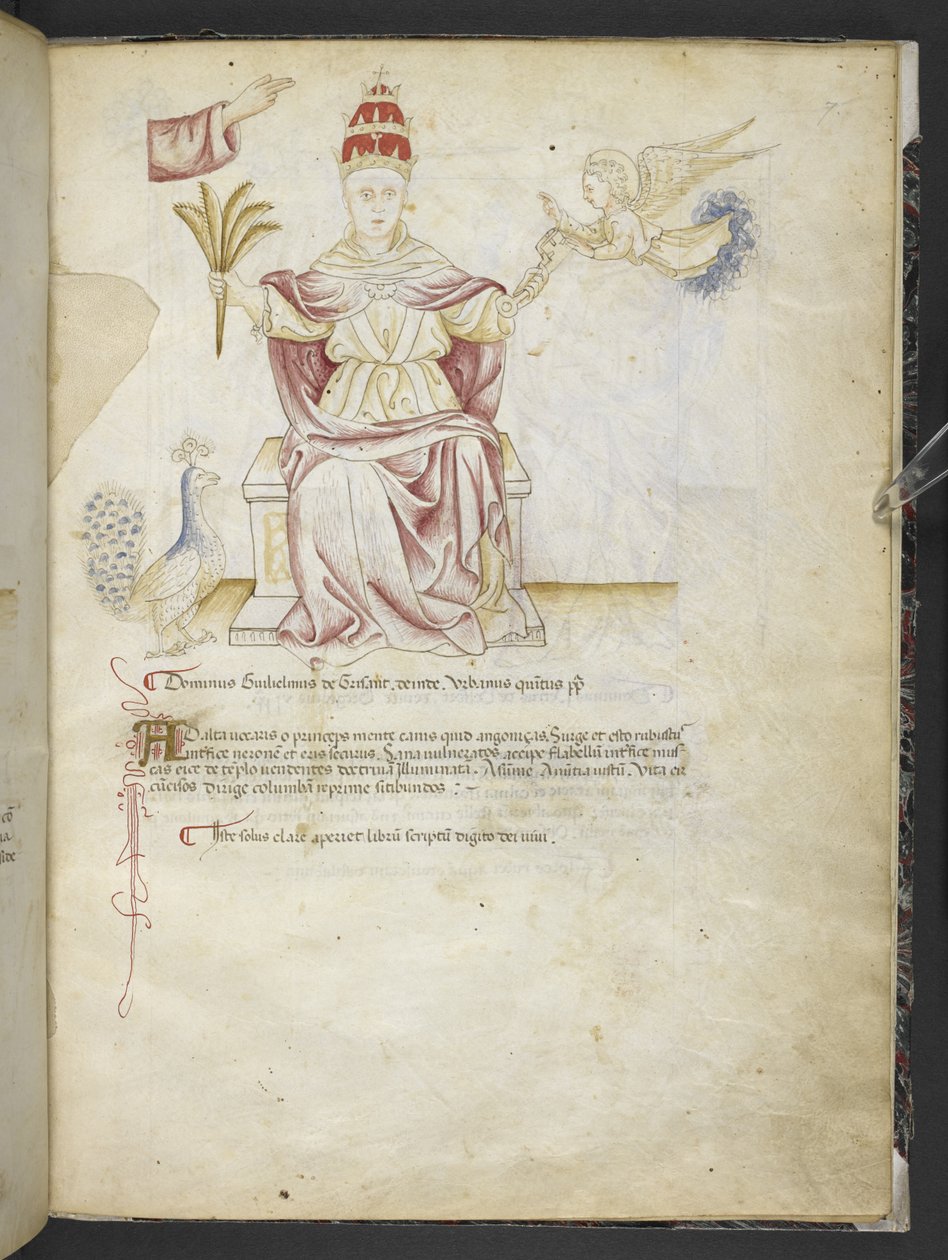 Dominus Guilielmus de Grisant. deinde. Vrbanus quintus pp
AD alta uocaris o princeps mente canus quid angonizas. Surge et esto robustus
interfice neronē et eris securus. Sana vulneratos accipe flabellū interfice mus
cas eice de tēplo uendentes doctrinā illuminata. Asūme Anūtia iustū. Vita cir
cūcisos dirige columbā reprime sitibundos
Iste solus clare aperiet librū scriptū digito dei uiui.